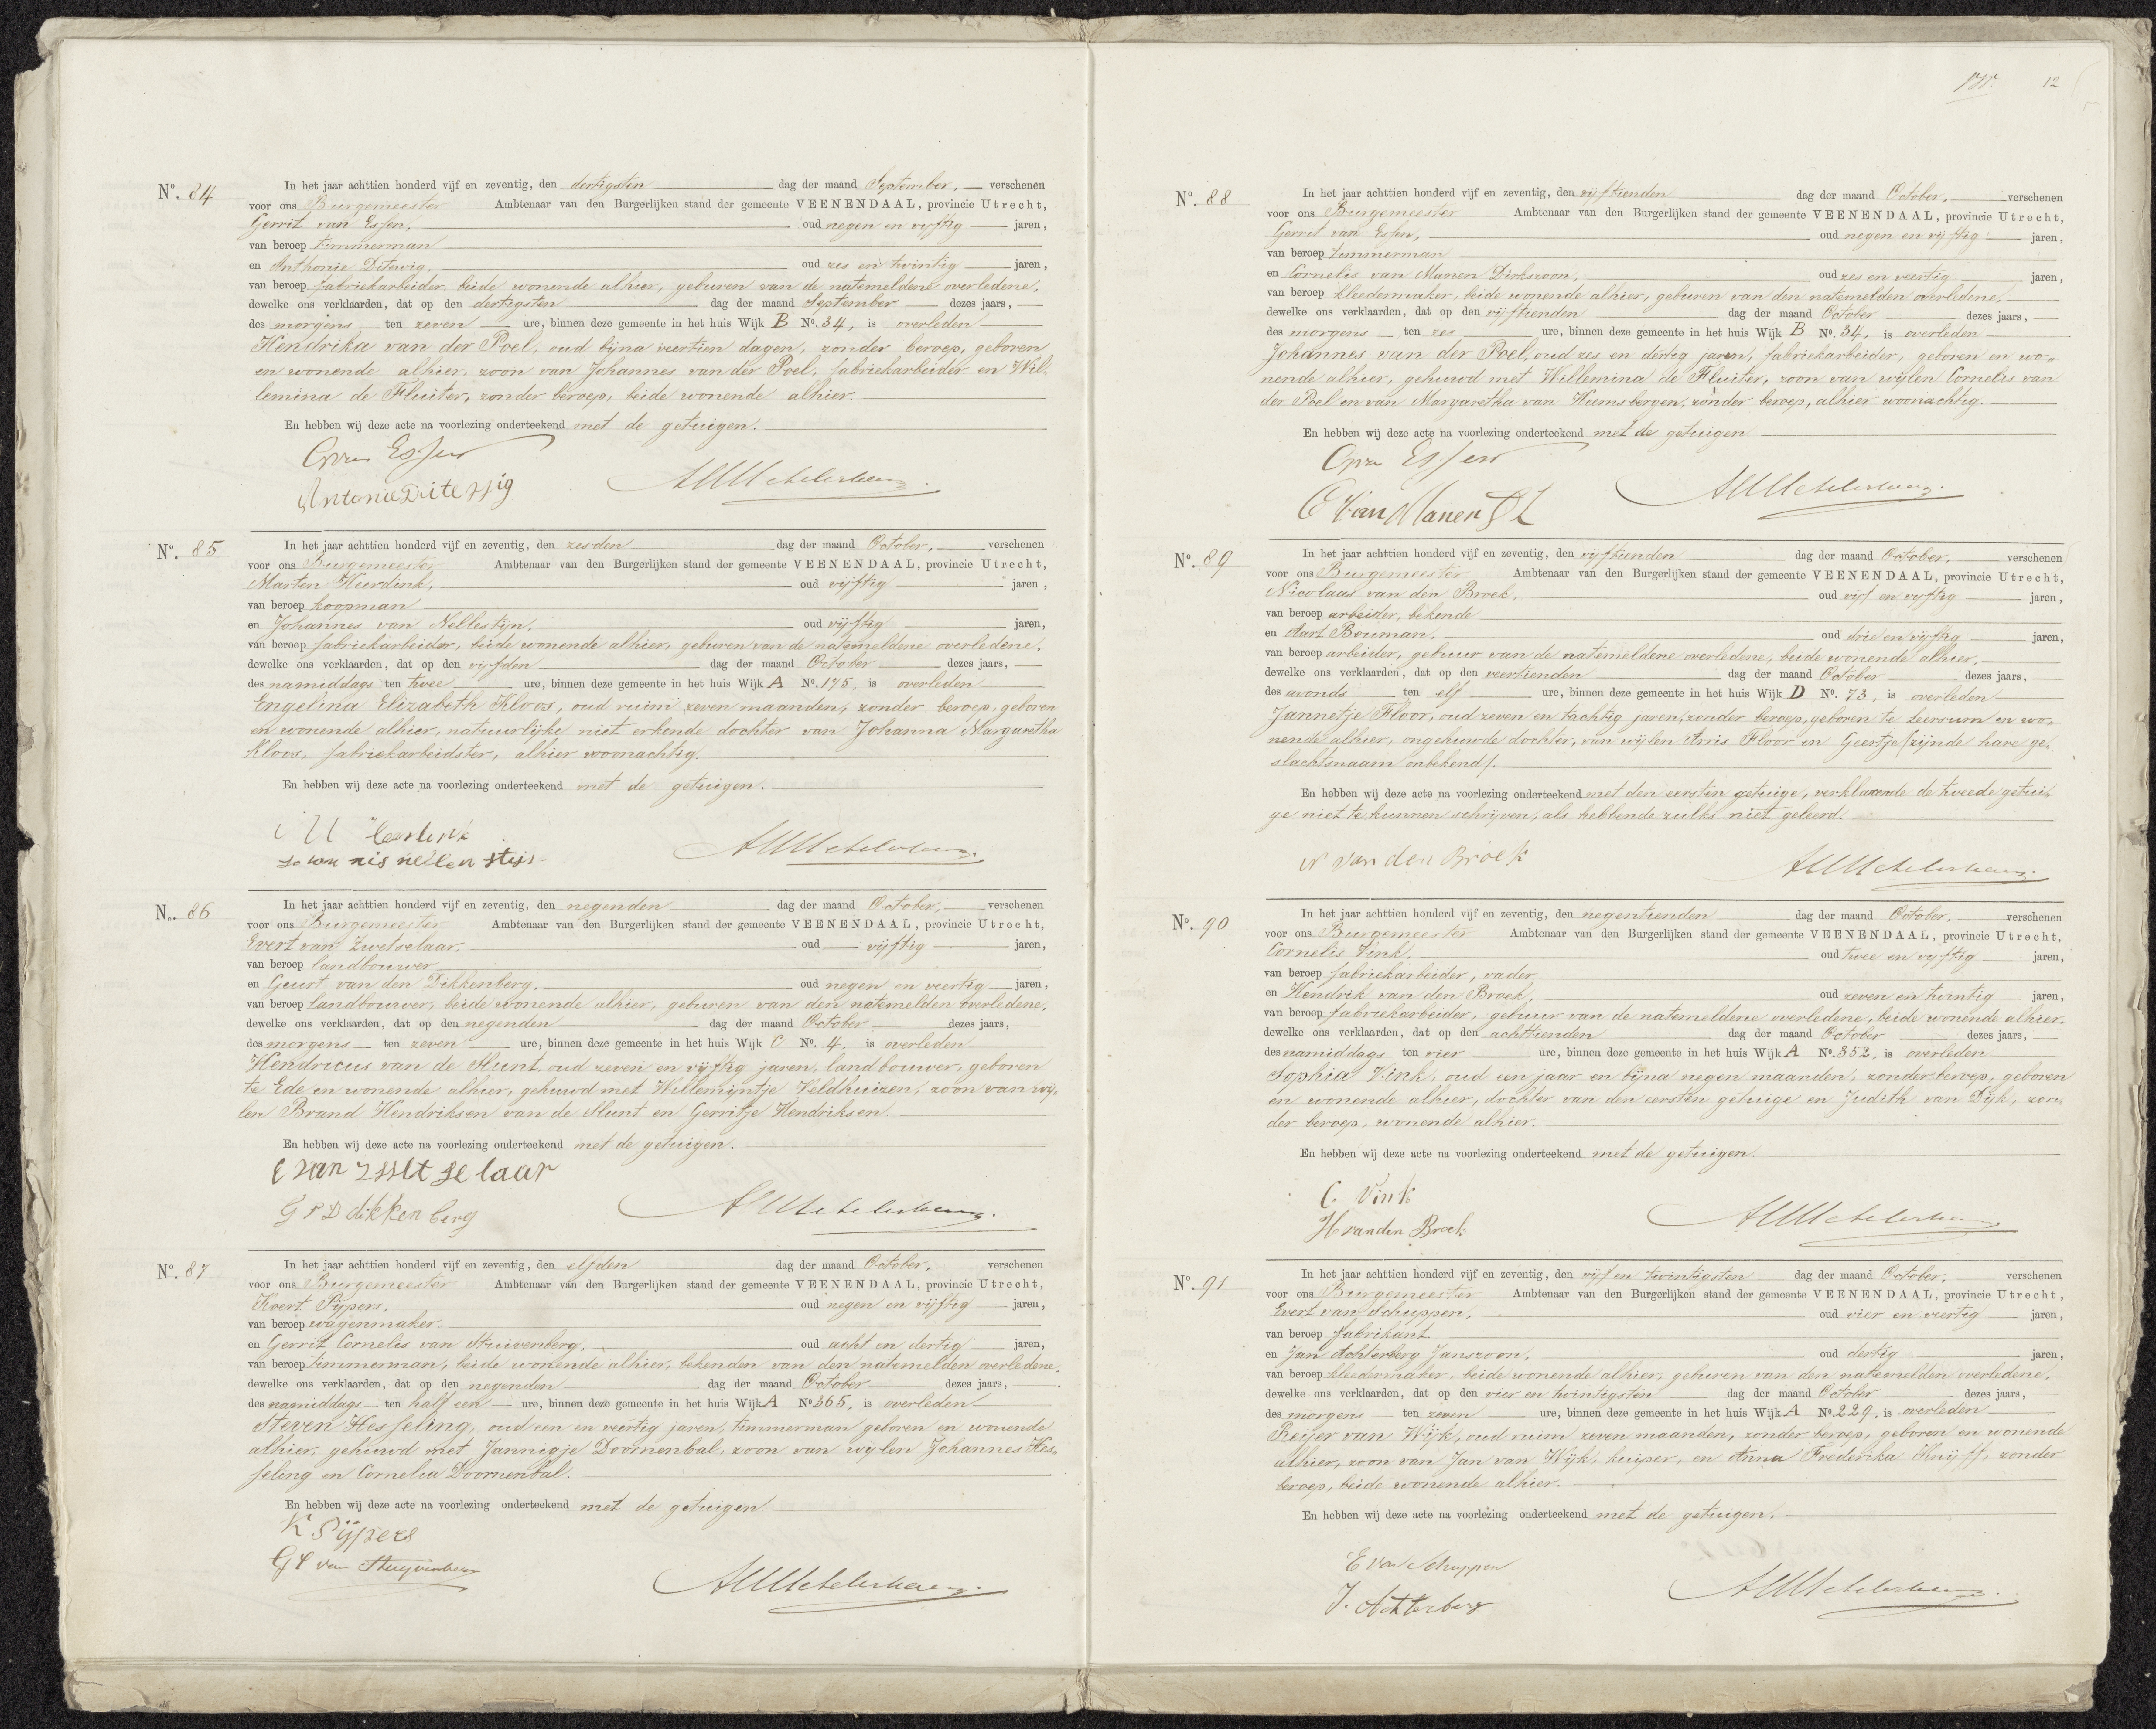 Nº. 84
In het jaar achttien honderd vijf en zeventig, den dertigsten dag der maand September, verschenen
voor ons Burgemeester Ambtenaar van den Burgerlijken stand der gemeente VEENENDAAL, provincie Utrecht,
Gerrit van Essen, oud negen en vijftig jaren,
van beroep timmerman
en Anthonie Ditewig, oud zes en twintig jaren,
van beroep fabriekarbeider, beide wonende alhier, geburen van de natemeldene overledene,
dewelke ons verklaarden, dat op den dertigsten dag der maand September dezes jaars,
des morgens ten zeven ure, binnen deze gemeente in het huis Wijk B Nº. 34, is overleden
Hendrika van der Poel, oud bijna veertien dagen, zonder beroep, geboren
en wonende alhier, zoon van Johannes van der Poel, fabriekarbeider en Wil-
lemina de Fluiter, zonder beroep, beide wonende alhier.
En hebben wij deze acte na voorlezing onderteekend met de getuigen.
G van Essen
Antonie Ditewig
Nº. 85
In het jaar achttien honderd vijf en zeventig, den zesden dag der maand October, verschenen
voor ons Burgemeester Ambtenaar van den Burgerlijken stand der gemeente VEENENDAAL, provincie Utrecht,
Marten Heerdink, oud vijftig jaren,
van beroep koopman
en Johannes van Nellestijn, oud vijftig jaren,
van beroep fabriekarbeider, beide wonende alhier, geburen van de natemeldene overledene,
dewelke ons verklaarden, dat op den vijfden dag der maand October dezes jaars,
des namiddags ten twee ure, binnen deze gemeente in het huis Wijk A Nº. 175, is overleden
Engelina Elizabeth Kloos, oud ruim zeven maanden, zonder beroep, geboren
en wonende alhier, natuurlijke niet erkende dochter van Johanna Margaretha
Kloos, fabriekarbeidster, alhier woonachtig.
En hebben wij deze acte na voorlezing onderteekend met de getuigen.
Nº. 86
In het jaar achttien honderd vijf en zeventig, den negenden dag der maand October, verschenen
voor ons Burgemeester Ambtenaar van den Burgerlijken stand der gemeente VEENENDAAL, provincie Utrecht,
Evert van Zwetselaar, oud vijftig jaren,
van beroep landbouwer
en Geurt van den Dikkenberg, oud negen en veertig jaren,
van beroep landbouwer, beide wonende alhier, geburen van den natemelden overledene,
dewelke ons verklaarden, dat op den negenden dag der maand October dezes jaars,
des morgens ten zeven ure, binnen deze gemeente in het huis Wijk C Nº. 4, is overleden
Hendricus van de Slunt, oud zeven en vijftig jaren, landbouwer, geboren
te Ede en wonende alhier, gehuwd met Willemijntje Veldhuizen, zoon van wij-
len Brand Hendriksen van de Slunt en Gerritje Hendriksen.
En hebben wij deze acte na voorlezing onderteekend met de getuigen.
E van Zwetselaar
G V D dikkenberg
Nº. 87
In het jaar achttien honderd vijf en zeventig, den elfden dag der maand October, verschenen
voor ons Burgemeester Ambtenaar van den Burgerlijken stand der gemeente VEENENDAAL, provincie Utrecht,
Koert Pijpers, oud negen en vijftig jaren,
van beroep wagenmaker.
en Gerrit Cornelis van Stuivenberg, oud acht en dertig jaren,
van beroep timmerman, beide wonende alhier, bekenden van den natemelden overledene,
dewelke ons verklaarden, dat op den negenden dag der maand October dezes jaars,
des namiddags ten half een ure, binnen deze gemeente in het huis Wijk A Nº 365, is overleden
Steven Hesseling, oud een en veertig jaren, timmerman geboren en wonende
alhier, gehuwd met Jannigje Doornenbal, zoon van wijlen Johannes Hes-
seling en Cornelia Doornenbal.
En hebben wij deze acte na voorlezing onderteekend met de getuigen
K Pijpers
G C van Stuyvenberg
12
Nº. 88
In het jaar achttien honderd vijf en zeventig, den vijftienden dag der maand October, verschenen
voor ons Burgemeester Ambtenaar van den Burgerlijken stand der gemeente VEENENDAAL, provincie Utrecht,
Gerrit van Essen, oud negen en vijftig jaren,
van beroep timmerman
en Cornelis van Manen Dirkszoon, oud zes en veertig jaren,
van beroep kleedermaker, beide wonende alhier, geburen van den natemelden overledene,
dewelke ons verklaarden, dat op den vijftienden dag der maand October dezes jaars,
des morgens ten zes ure, binnen deze gemeente in het huis Wijk B Nº. 34, is overleden
Johannes van der Poel, oud zes en dertig jaren, fabriekarbeider, geboren en wo-
nende alhier, gehuwd met Willemina de Fluiter, zoon van wijlen Cornelis van
der Poel en van Margaretha van Heemsbergen, zonder beroep, alhier woonachtig.
En hebben wij deze acte na voorlezing onderteekend met de getuigen
G van Essen
C van Manen
Nº. 89
In het jaar achttien honderd vijf en zeventig, den vijftienden dag der maand October, verschenen
voor ons Burgemeester Ambtenaar van den Burgerlijken stand der gemeente VEENENDAAL, provincie Utrecht,
Nicolaas van den Broek, oud vijf en vijftig jaren,
van beroep arbeider, bekende
en Aart Bouman, oud drie en vijftig jaren,
van beroep arbeider, gebuur van de natemeldene overledene, beide wonende alhier,
dewelke ons verklaarden, dat op den veertienden dag der maand October dezes jaars,
des avonds ten elf ure, binnen deze gemeente in het huis Wijk D Nº. 73, is overleden
Jannetje Floor, oud zeven en tachtig jaren, zonder beroep, geboren te Leersum en wo-
nende alhier, ongehuwde dochter, van wijlen Arris Floor en Geertje (zijnde hare ge-
slachtsnaam onbekend).
En hebben wij deze acte na voorlezing onderteekend met den eersten getuige, verklarende de tweede getui-
ge niet te kunnen schrijven, als hebbende zulks niet geleerd.
N van den Broek
Nº. 90
In het jaar achttien honderd vijf en zeventig, den negentienden dag der maand October, verschenen
voor ons Burgemeester Ambtenaar van den Burgerlijken stand der gemeente VEENENDAAL, provincie Utrecht,
Cornelis Vink, oud twee en vijftig jaren,
van beroep fabriekarbeider, vader
en Hendrik van den Broek, oud zeven en twintig jaren,
van beroep fabriekarbeider, gebuur van de natemeldene overledene, beide wonende alhier.
dewelke ons verklaarden, dat op den achttienden dag der maand October dezes jaars,
des namiddags ten vier ure, binnen deze gemeente in het huis Wijk A Nº. 352, is overleden
Sophia Vink, oud een jaar en bijna negen maanden, zonder beroep, geboren
en wonende alhier, dochter van den eersten getuige en Judith van Dijk, zon-
der beroep, wonende alhier.
En hebben wij deze acte na voorlezing onderteekend met de getuigen.
C. Vink
H van den Broek
Nº. 91
In het jaar achttien honderd vijf en zeventig, den vijf en twintigsten dag der maand October, verschenen
voor ons Burgemeester Ambtenaar van den Burgerlijken stand der gemeente VEENENDAAL, provincie Utrecht,
Evert van Schuppen, oud vier en veertig jaren,
van beroep fabrikant
en Jan Achterberg Janszoon, oud dertig jaren,
van beroep kleedermaker, beide wonende alhier, geburen van den natemelden overledene,
dewelke ons verklaarden, dat op den vier en twintigsten dag der maand October dezes jaars,
des morgens ten zeven ure, binnen deze gemeente in het huis Wijk A Nº. 229, is overleden
Reijer van Wijk, oud ruim zeven maanden, zonder beroep, geboren en wonende
alhier, zoon van Jan van Wijk, kuiper, en Anna Frederika Knijff, zonder
beroep, beide wonende alhier.
En hebben wij deze acte na voorlezing onderteekend met de getuigen.
E van Schuppen
J. Achterberg